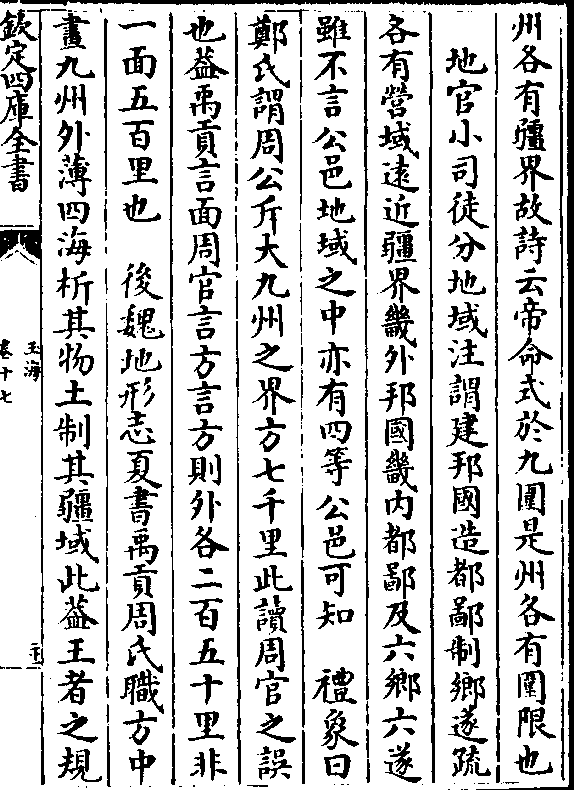 州各有疆界故詩云帝命式於九圍是州各有圍限也
地官小司徒分地域注謂建邦國造都鄙制鄉遂疏
各有營域逺近疆界畿外邦國畿内都鄙及六鄉六遂
雖不言公邑地域之中亦有四等公邑可知 禮象曰
鄭氏謂周公斥大九州之界方七千里此讀周官之誤
也葢禹貢言面周官言方言方則外各二百五十里非
一面五百里也 後魏地形志夏書禹貢周氏職方中
畫九州外薄四海析其物土制其疆域此葢王者之規
欽定四庫全書
玉海
卷十七